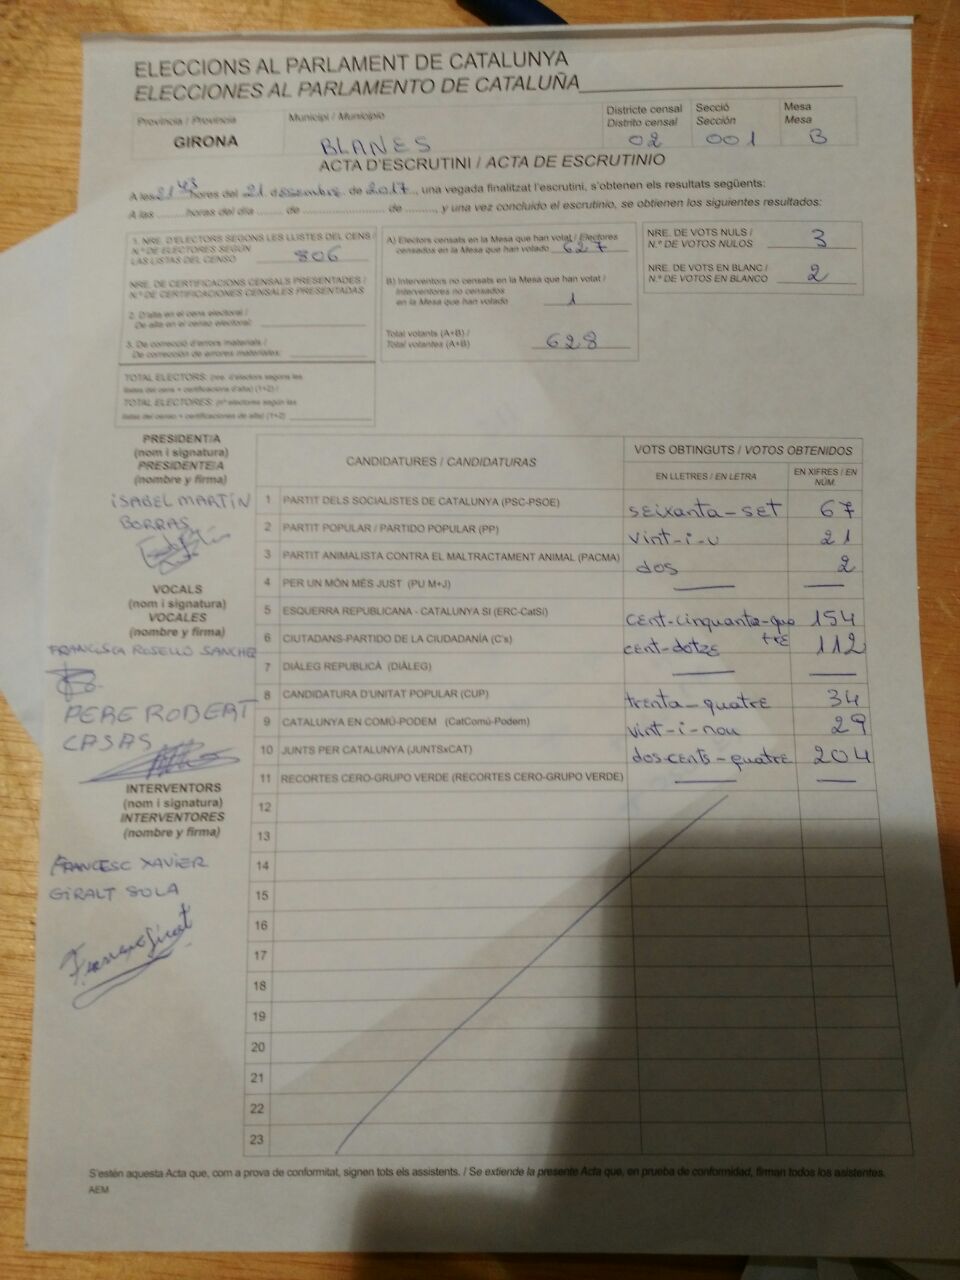 ELECCIONS AL PARLAMENT DE CATALUNYA
ELECCIONES AL PARLAMENTO DE CATALUÑA
Província / Provincia
GIRONA
Municipi / Municipio
BLANES
Districte censal
Distrito censal
02
Secció
Sección
001
Mesa
Mesa
B
ACTA D'ESCRUTINI / ACTA DE ESCRUTINIO
A les 21 43 hores del 21 desembre de 2017, una vegada finalitzat l'escrutini, s'obtenen els resultats següents:
A las ......... horas del día ....... de ........................ de ........, y una vez concluido el escrutinio, se obtienen los siguientes resultados:
1. NRE. D'ELECTORS SEGONS LES LLISTES DEL CENS /
N.º DE ELECTORES SEGÚN
LAS LISTAS DEL CENSO 806
NRE. DE CERTIFICACIONS CENSALS PRESENTADES /
N.º DE CERTIFICACIONES CENSALES PRESENTADAS
2. D'alta en el cens electoral /
De alta en el censo electoral:
3. De correcció d'errors materials /
De corrección de errores materiales:
TOTAL ELECTORS: (nre. d'electors segons les
llistes del cens + certificacions d'alta) (1+2) /
TOTAL ELECTORES: (nº electores según las
listas del censo + certificaciones de alta) (1+2)
A) Electors censats en la Mesa que han votat / Electores
censados en la Mesa que han votado 627
B) Interventors no censats en la Mesa que han votat /
Interventores no censados
en la Mesa que han votado 1
Total votants (A+B) /
Total votantes (A+B) 628
NRE. DE VOTS NULS /
N.º DE VOTOS NULOS 3
NRE. DE VOTS EN BLANC /
N.º DE VOTOS EN BLANCO 2
PRESIDENT/A
(nom i signatura)
PRESIDENTE/A
(nombre y firma)
ISABEL MARTÍN
BORRAS
VOCALS
(nom i signatura)
VOCALES
(nombre y firma)
FRANCISCA ROSELLÓ SANCHEZ
PERE ROBERT
CASAS
INTERVENTORS
(nom i signatura)
INTERVENTORES
(nombre y firma)
FRANCESC XAVIER
GIRALT SOLA
CANDIDATURES / CANDIDATURAS
VOTS OBTINGUTS / VOTOS OBTENIDOS
EN LLETRES / EN LETRA
EN XIFRES / EN
NÚM.
1 PARTIT DELS SOCIALISTES DE CATALUNYA (PSC-PSOE) seixanta-set 67
2 PARTIT POPULAR / PARTIDO POPULAR (PP) vint-i-u 21
3 PARTIT ANIMALISTA CONTRA EL MALTRACTAMENT ANIMAL (PACMA) dos 2
4 PER UN MÓN MÉS JUST (PU M+J)
5 ESQUERRA REPUBLICANA - CATALUNYA SI (ERC-CatSí) cent-cinquanta-quatre 154
6 CIUTADANS-PARTIDO DE LA CIUDADANÍA (C's) cent-dotze 112
7 DIÀLEG REPUBLICÀ (DIÀLEG)
8 CANDIDATURA D'UNITAT POPULAR (CUP) trenta-quatre 34
9 CATALUNYA EN COMÚ-PODEM (CatComú-Podem) vint-i-nou 29
10 JUNTS PER CATALUNYA (JUNTSxCAT) dos-cents-quatre 204
11 RECORTES CERO-GRUPO VERDE (RECORTES CERO-GRUPO VERDE)
12
13
14
15
16
17
18
19
20
21
22
23
S'estén aquesta Acta que, com a prova de conformitat, signen tots els assistents. / Se extiende la presente Acta que, en prueba de conformidad, firman todos los asistentes.
AEM